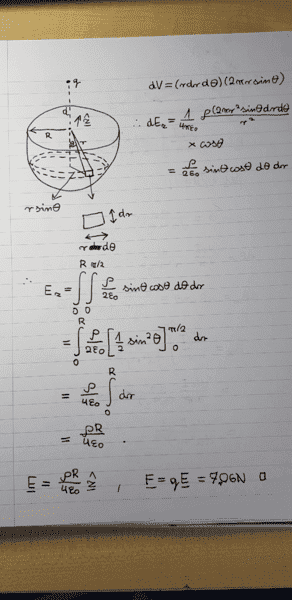 q
d
R
ẑ
θ
r
r sinθ
dr
r dθ
dV = (r dr dθ)(2πr sinθ)
∴ dE_z = 1/4πε₀ ρ(2πr² sinθ dr dθ)/r²
× cosθ
= ρ/2ε₀ sinθ cosθ dθ dr
∴ E_z = ∫₀^R ∫₀^π/2 ρ/2ε₀ sinθ cosθ dθ dr
= ∫₀^R ρ/2ε₀ [1/2 sin²θ]₀^π/2 dr
= ρ/4ε₀ ∫₀^R dr
= ρR/4ε₀ .
E = ρR/4ε₀ ẑ , F = qE =